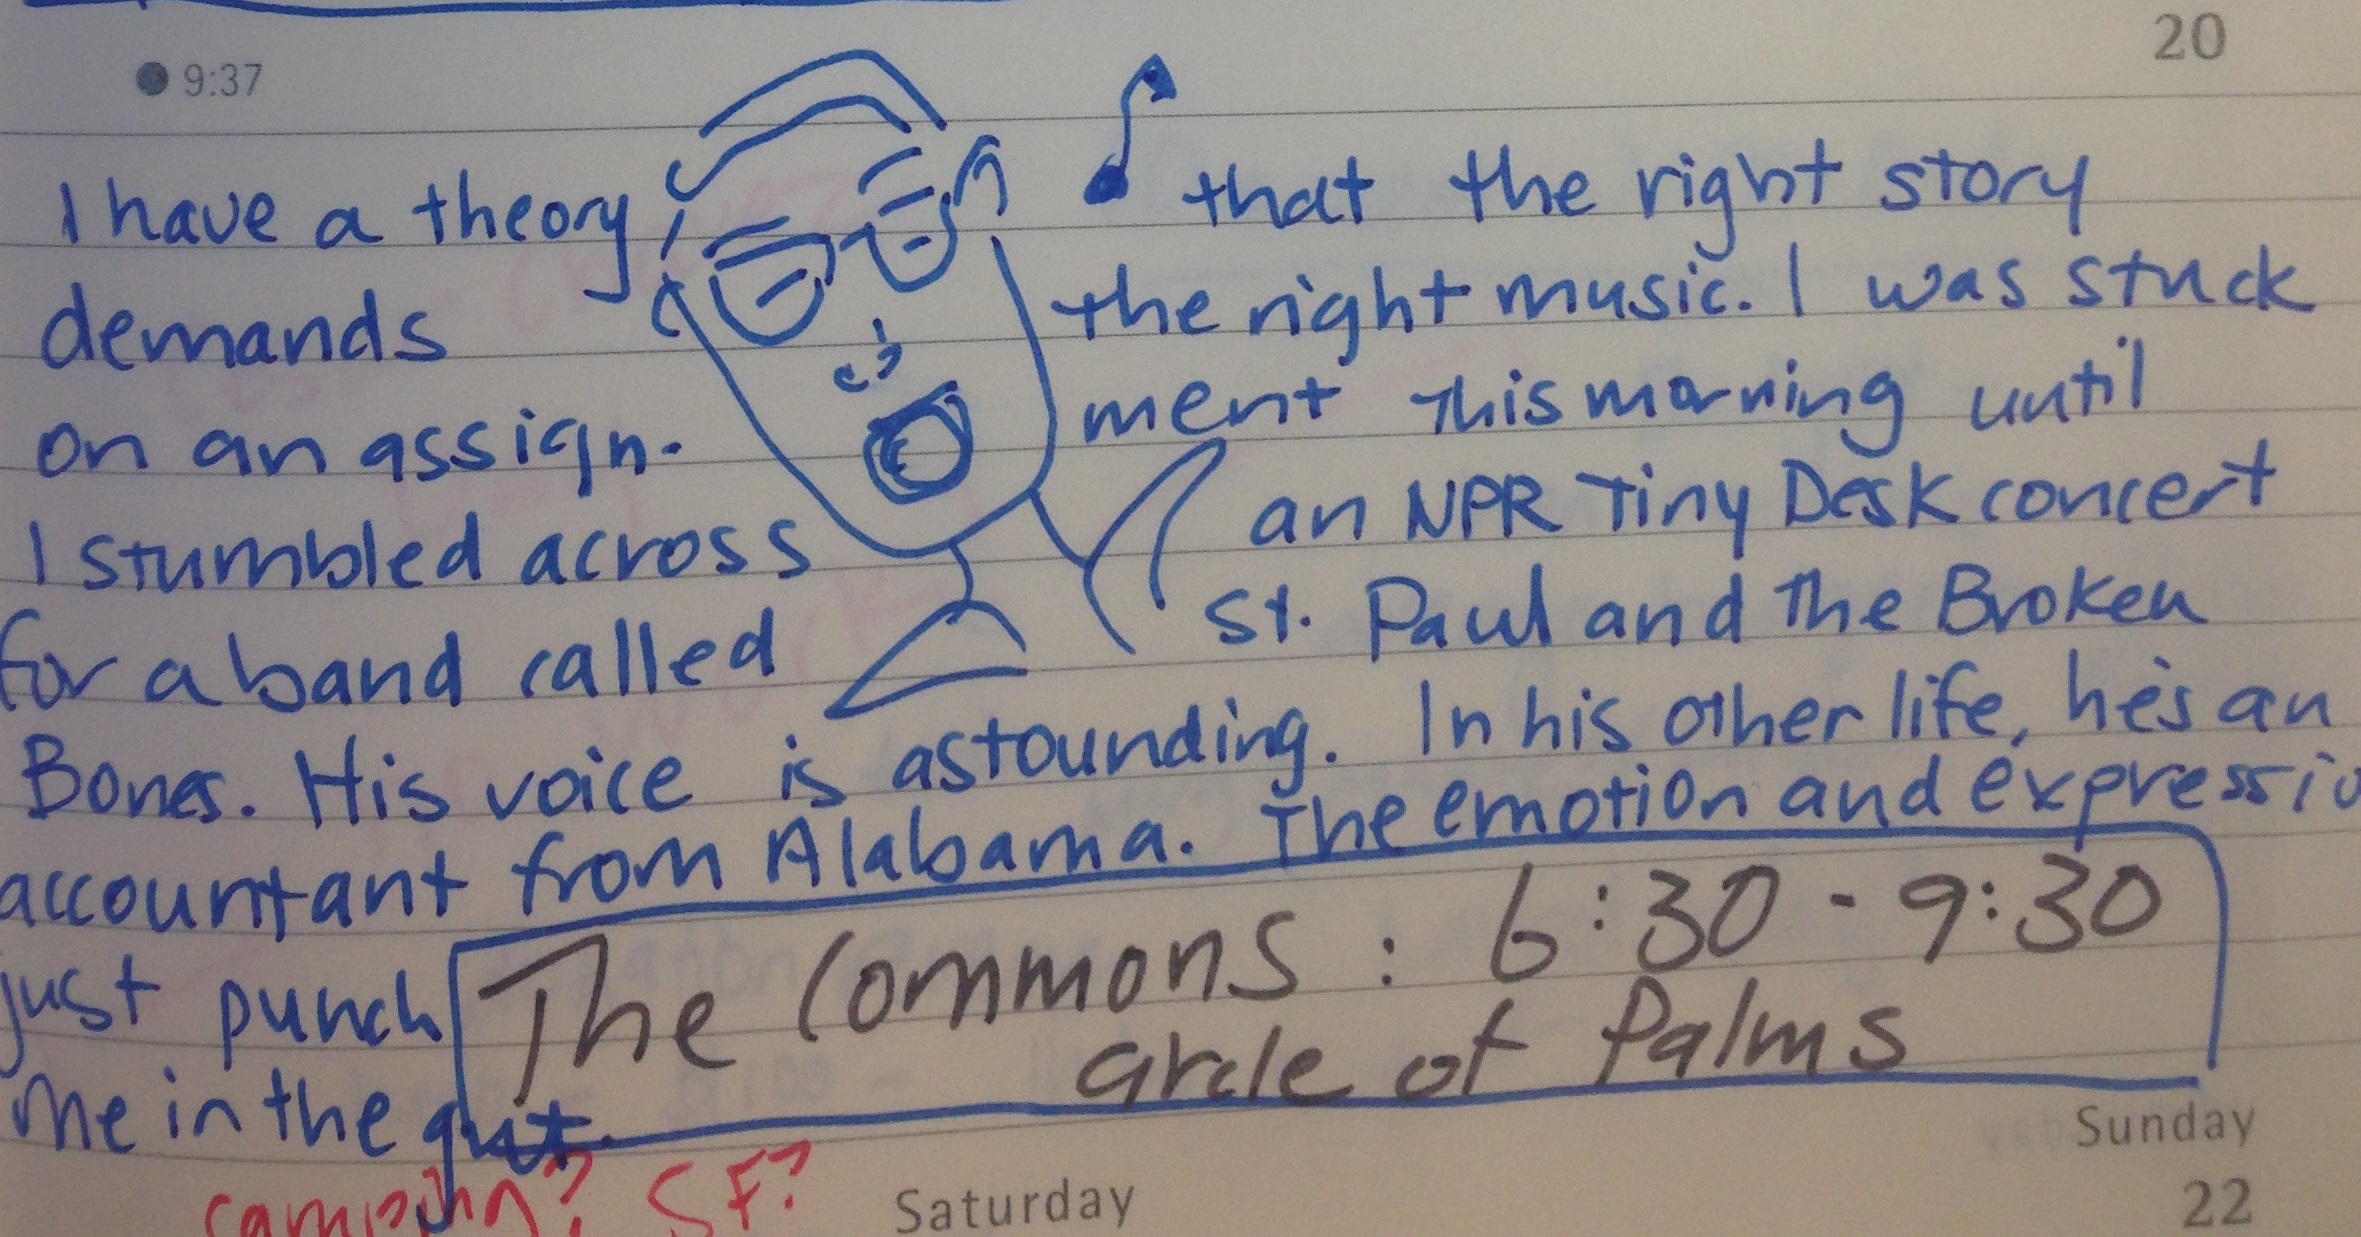 20
9:37
I have a theory that the right story
demands the right music. I was stuck
on an assign- ment this morning until
I stumbled across an NPR Tiny Desk concert
for a band called St. Paul and the Broken
Bones. His voice is astounding. In his other life, he's an
accountant from Alabama. The emotion and expressio
just punch
me in the gut.
The Commons: 6:30-9:30
circle of Palms
Sunday
camping? SF?
Saturday
22